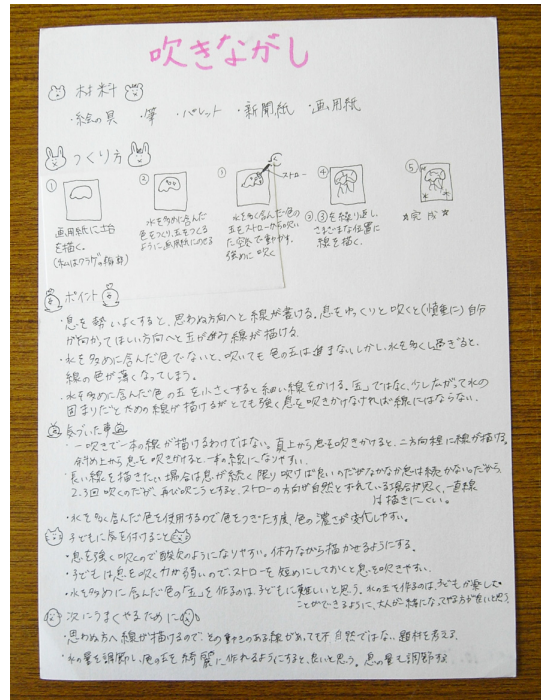 吹きながし
材料
・絵の具 ・筆 ・パレット ・新聞紙 ・画用紙
つくり方
① ② ③ ストロー ④ ⑤
画用紙に土台
を描く。
(私はクラゲの指輪)
水を多めに含んだ
色をつくり、玉をつくる
ように、画用紙にのせる
水を多く含んだ色の
玉をストローから吹い
た空気で動かす。
強めに吹く
②③を繰り返し、
さまざまな位置に
線を描く。
☆完成☆
ポイント
・息を勢いよくすると、思わぬ方向へと線が書ける。息をゆっくりと吹くと(慎重に)自分
が向かってほしい方向へと玉が進み線が描ける。
・水を多めに含んだ色でないと、吹いても色の玉は進まない。しかし、水を多くし過ぎると、
線の色が薄くなってしまう。
・水を多めに含んだ色の玉を小さくすると細い線をかける。「玉」ではなく、少し広がって水の
固まりだと太めの線が描けるがとても強く息を吹きかけなければ線にはならない。
気づいた事
・一吹きで一本の線が描けるわけではない。真上から息を吹きかけると、二方向程に線が描ける。
斜め上から息を吹きかけると一本の線になりやすい。
・長い線を描きたい場合は息が続く限り吹けば良いのだがなかなか息は続かない。だから
2、3回吹くのだが、再び吹こうとすると、ストローの方向が自然とずれている場合が多く、一直線
は描きにくい。
・水を多く含んだ色を使用するので色をつぎたす度、色の濃さが変化しやすい。
子どもに気を付けること
・息を強く吹くので酸欠のようになりやすい。休みながら描かせるようにする。
・子どもは息を吹く力が弱いので、ストローを短めにしておくと息を吹きやすい。
・水を多めに含んだ色の「玉」を作るのは、子どもに難しいと思う。水の玉を作るのは、子どもが楽しむ
ことができるように、大人が一緒になってやる方が良いと思う。
次にうまくやるために
・思わぬ方へ線が描けるので、どの動きのある線があっても不自然ではない題材を考える。
・水の量を調節し、色の玉を綺麗に作れるようにすると、良いと思う。息の量も調節する